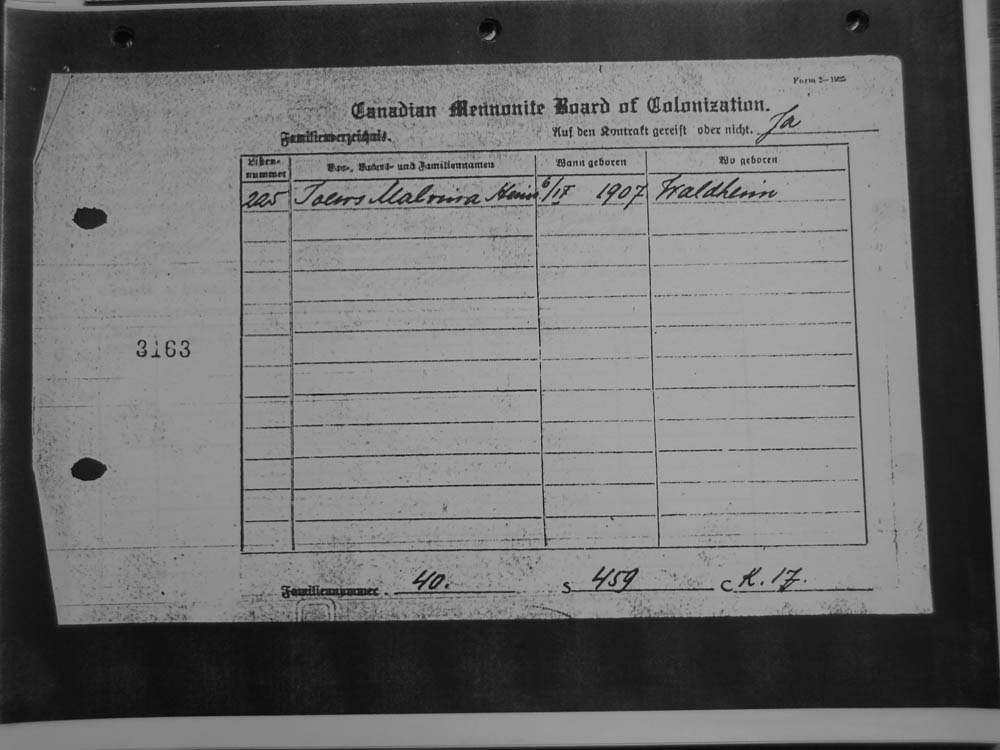 Form 2—1925
Canadian Mennonite Board of Colonization.
Familienverzeichnis. Auf den Kontrakt gereist oder nicht. Ja
Listen-nummer Vor-, Vaters- und Familiennamen Wann geboren Wo geboren
225 Toews Malvina Hein 6/17 1907 Waldheim
3163
Familiennummer. 40. S 459 C K. 17.